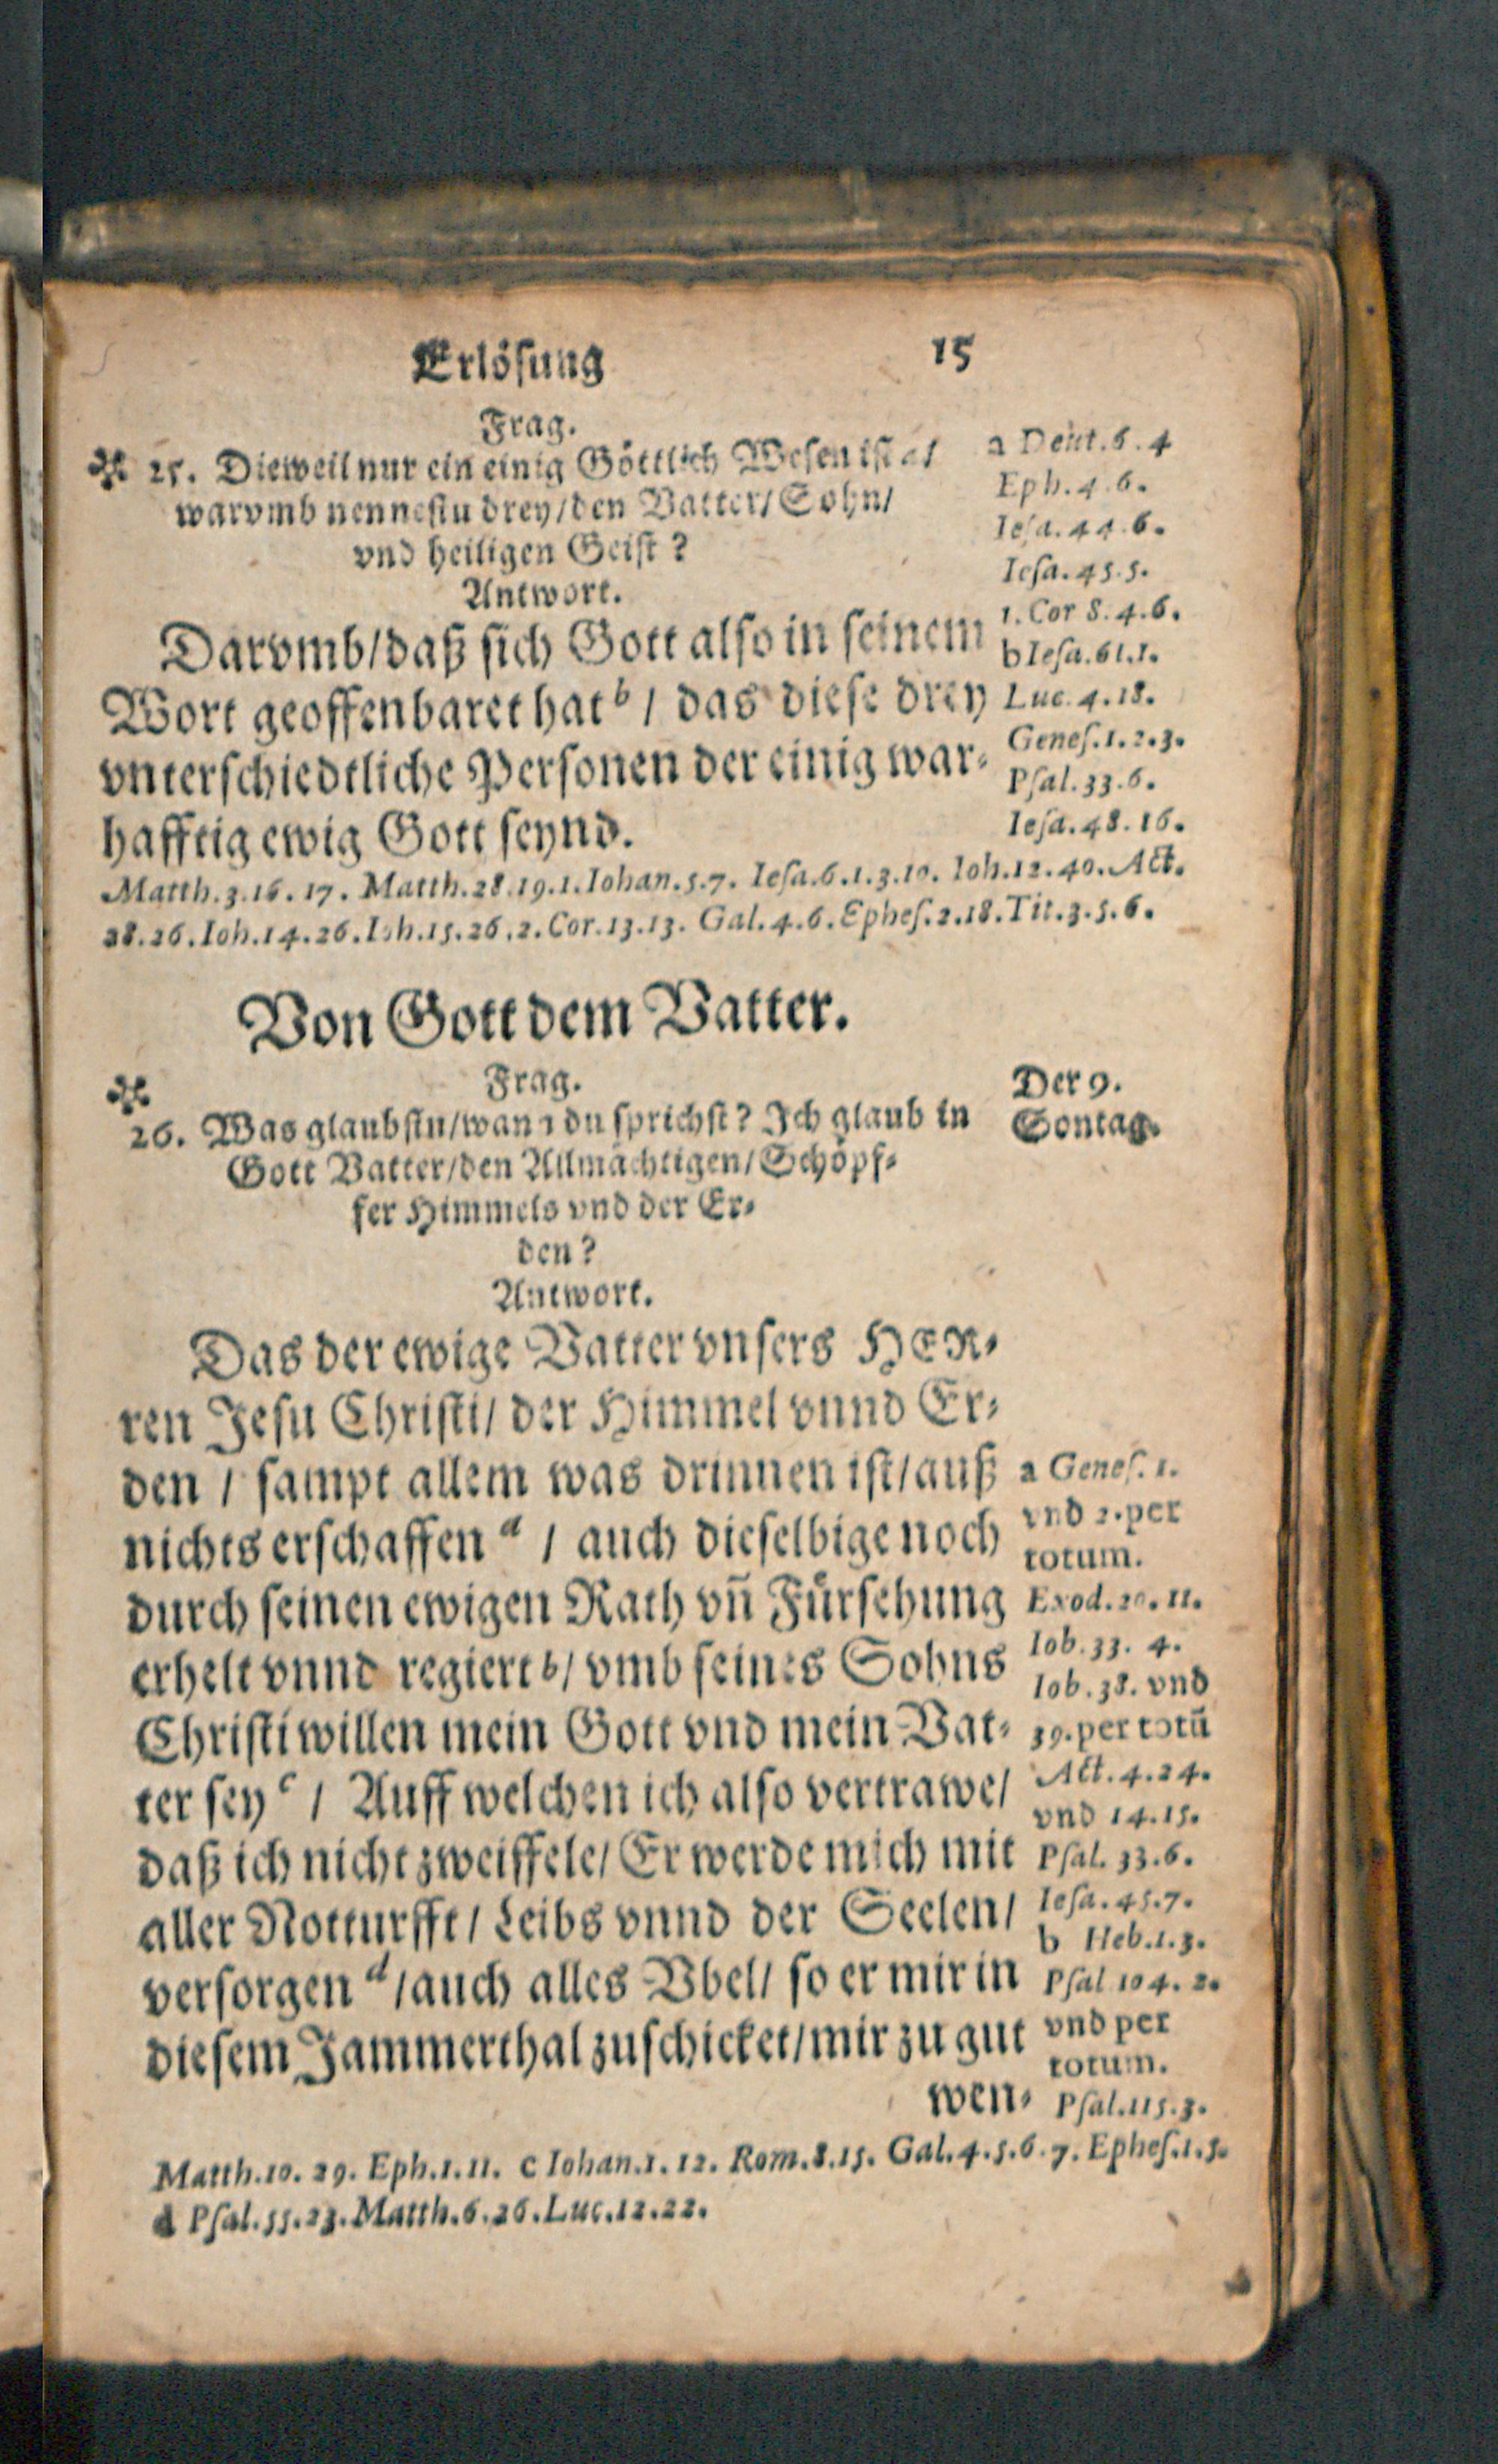 Erlösung 15
Frag.
25. Dieweil nur ein einig Göttlich Wesen ist a/
warvmb nennestu drey/den Vatter/Sohn/
vnd heiligen Geist?
Antwort.
Darvmb/daß sich Gott also in seinem
Wort geoffenbaret hat b / das diese drey
vnterschiedtliche Personen der einig war⸗
hafftig ewig Gott seynd.
a Deut.6.4
Eph.4.6.
Iesa.44.6.
Iesa.45.5.
1.Cor 8.4.6.
b Iesa.61.1.
Luc.4.18.
Genes.1.2.3.
Psal.33.6.
Iesa.48.16.
Matth.3.16.17. Matth.28.19.1.Iohan.5.7. Iesa.6.1.3.10. Ioh.12.40.Act.
28.26.Ioh.14.26.Ioh.15.26.2.Cor.13.13. Gal.4.6.Ephes.2.18.Tit.3.5.6.
Von Gott dem Vatter.
Frag.
26. Was glaubstu/wann du sprichst? Ich glaub in
Gott Vatter/den Allmächtigen/Schöpf⸗
fer Himmels vnd der Er⸗
den?
Der 9.
Sontag.
Antwort.
Das der ewige Vatter vnsers HER⸗
ren Jesu Christi/ der Himmel vnnd Er⸗
den / sampt allem was drinnen ist/auß
nichts erschaffen a / auch dieselbige noch
durch seinen ewigen Rath vn̄ Fürsehung
erhelt vnnd regiert b/ vmb seines Sohns
Christi willen mein Gott vnd mein Vat⸗
ter sey c / Auff welchen ich also vertrawe/
daß ich nicht zweiffele/ Er werde mich mit
aller Notturfft/ Leibs vnnd der Seelen/
versorgen d /auch alles Vbel/ so er mir in
diesem Jammerthal zuschicket/mir zu gut
wen⸗
a Genes. 1.
vnd 2.per
totum.
Exod.20.11.
Iob.33. 4.
Iob.38. vnd
39.per totū
Act.4.24.
vnd 14.15.
Psal. 33.6.
Iesa.45.7.
b Heb.1.3.
Psal 104. 2.
vnd per
totum.
Psal.115.3.
Matth.10. 29. Eph.1.11. c Iohan.1.12. Rom.8.15. Gal.4.5.6.7. Ephes.1.5.
d Psal.55.23.Matth.6.26.Luc.12.22.